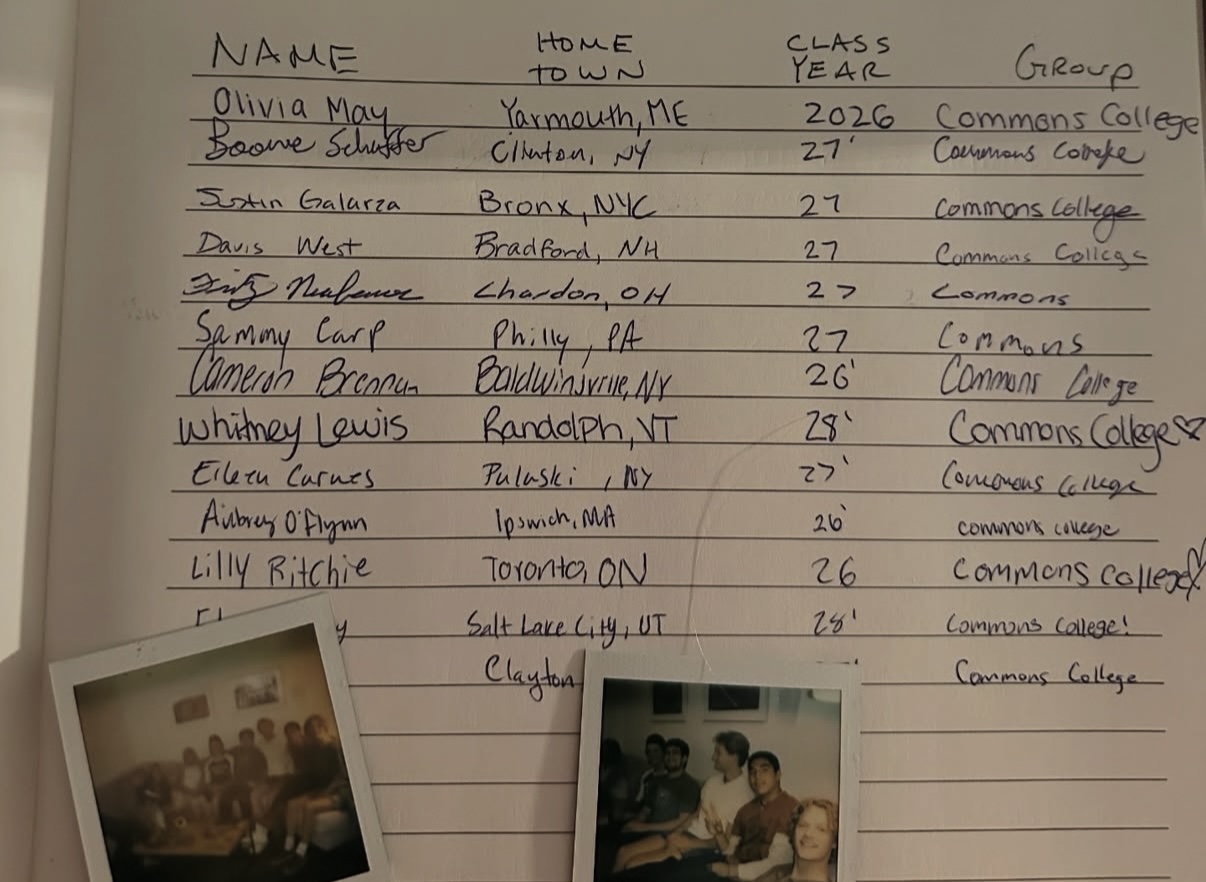 NAME HOME TOWN CLASS YEAR GROUP
Olivia May Yarmouth, ME 2026 Commons College
Boone Schuffer Clinton, NY 27' Commons College
Justin Galarza Bronx, NYC 27 Commons College
Davis West Bradford, NH 27 Commons College
Chardon, OH 27 Commons
Sammy Carp Philly, PA 27 Commons
Cameron Brennan Baldwinsville, NY 26' Commons College
Whitney Lewis Randolph, VT 28' Commons College
Eileen Carnes Pulaski, NY 27' Commons College
Aubrey O'Flynn Ipswich, MA 26' commons college
Lilly Ritchie Toronto, ON 26 Commons College
Salt Lake City, UT 28' Commons College!
Clayton Commons College